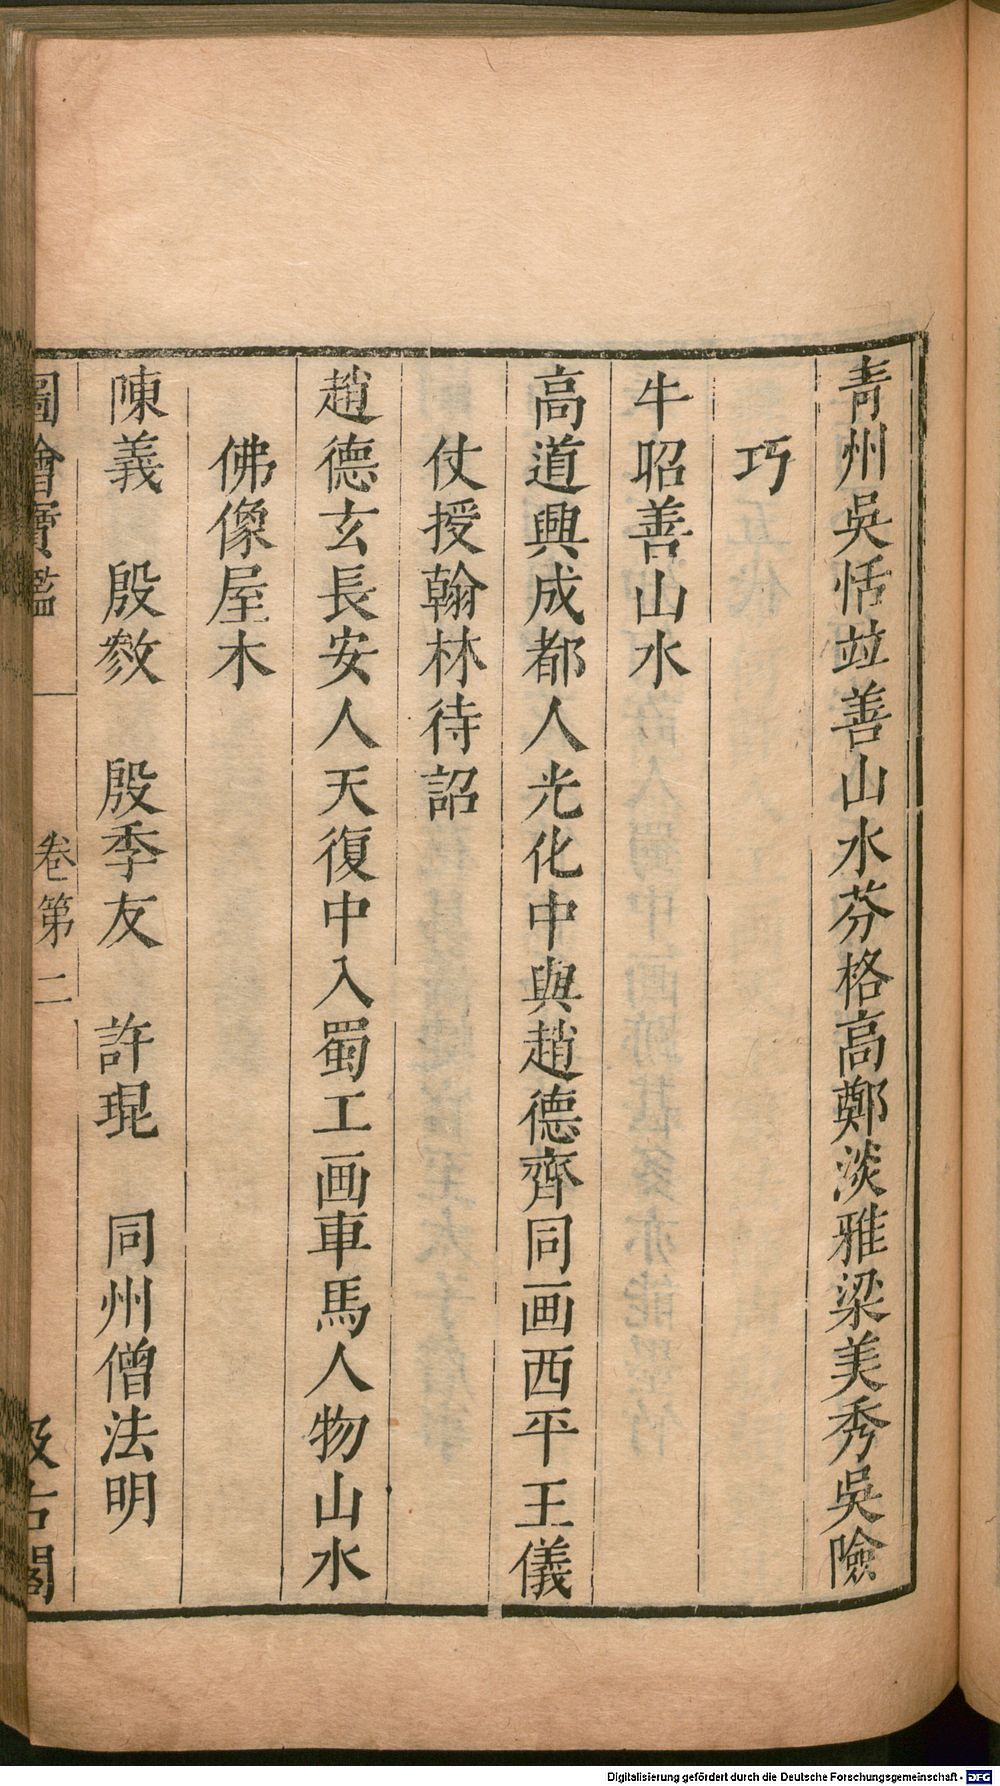 青州吳恬竝善山水芬格高鄭淡雅梁美秀吳險
巧
牛昭善山水
高道興成都人光化中與趙德齊同画西平王儀
仗授翰林待詔
趙德玄長安人天復中入蜀工画車馬人物山水
佛像屋木
陳義　殷敪　殷季友　許琨　同州僧法明
圖繪寶鑑　卷第二　汲古閣
Digitalisierung gefördert durch die Deutsche Forschungsgemeinschaft - DFG